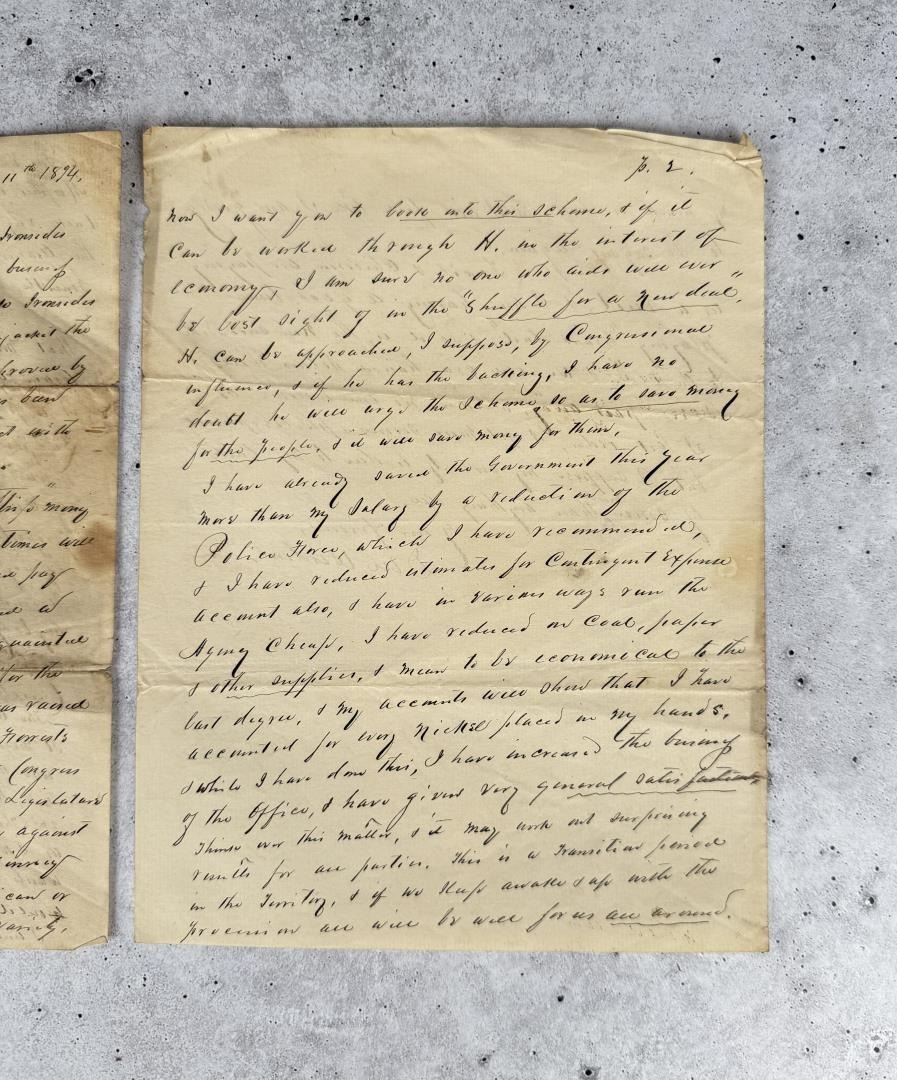 11th 1894.
Ironsides
business
to Ironsides
jacket the
proved by
been
with
money
times will
pay
acquainted
for the
was raised
Forrests
Congress
Legislature
against
can or
p. 2.
now I want you to look into this scheme, & if it
can be worked through H. in the interest of
economy, I am sure no one who aids will ever
be lost sight of in the "Shuffle for a new deal".
H. can be approached, I suppose, by Congressional
influence, & if he has the backing, I have no
doubt he will urge the scheme so as to save money
for the people, & it will save money for them.
I have already saved the Government this year
more than my Salary by a reduction of the
Police Force, which I have recommended,
& I have reduced estimates for Contingent Expense
account also, & have in various ways run the
Agency Cheap, I have reduced on Coal, paper
& other supplies, & mean to be economical to the
last degree, & my accounts will show that I have
accounted for every Nickel placed in my hands,
& while I have done this, I have increased the business
of the Office, & have given very general satisfaction
Think over this matter, & it may work out surprising
results for all parties. This is a Transition period
in the Territory, & if we keep awake & up with the
procession all will be well for us all around.